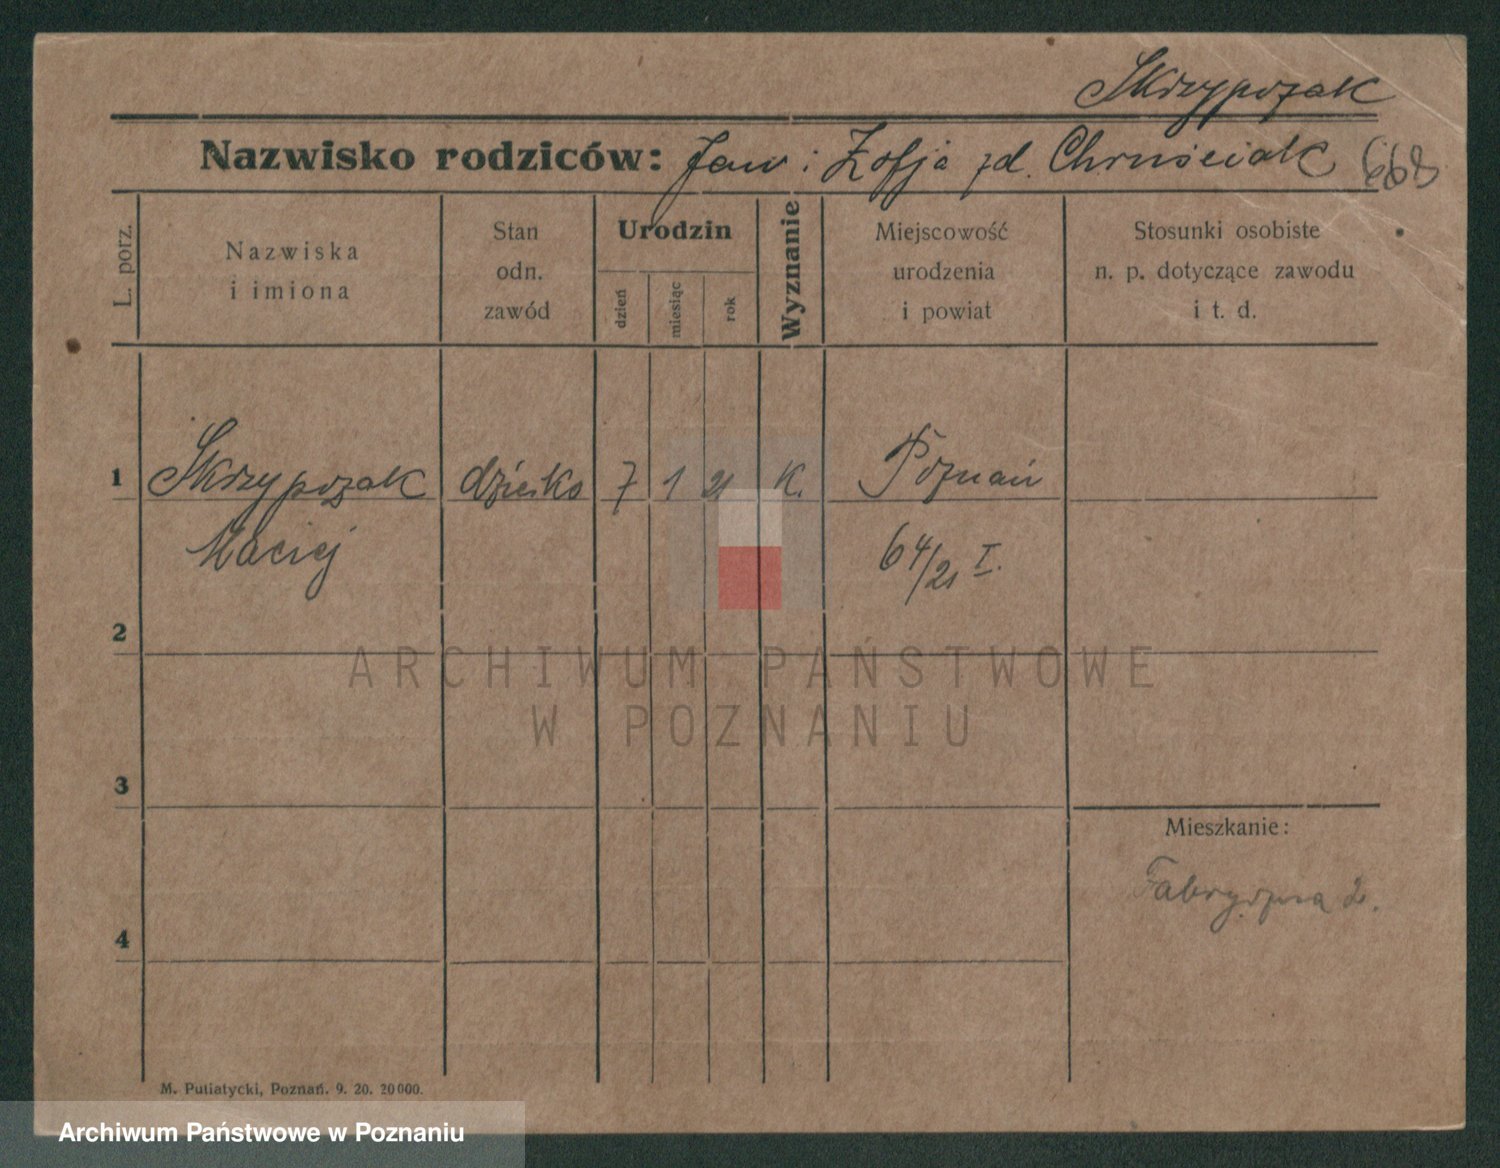 Skrzypczak
Nazwisko rodziców: Jan i Zofja zd. Chruściak 668
L. porz.
Nazwiska
i imiona
Stan
odn.
zawód
Urodzin
dzień
miesiąc
rok
Wyznanie
Miejscowość
urodzenia
i powiat
Stosunki osobiste
n. p. dotyczące zawodu
i t. d.
1 Skrzypczak dziecko 7 1 21 K. Poznań
Maciej 64/21 I.
2
ARCHIWUM PAŃSTWOWE
W POZNANIU
3
Mieszkanie:
Fabryczna 2.
4
M. Putiatycki, Poznań. 9. 20. 20000.
Archiwum Państwowe w Poznaniu